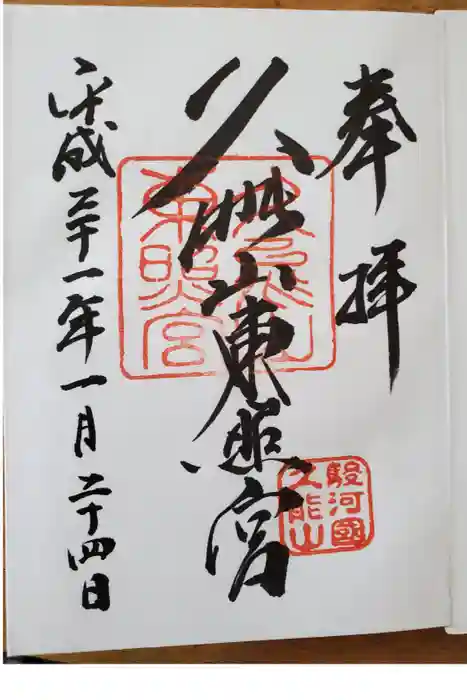 奉拝
久能山東照宮
平成三十一年一月二十四日
久能山
東照宮
駿河國
久能山